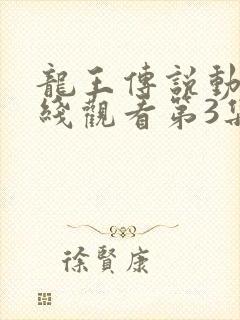 龍王傳說動
綫觀看第3集
徐賢康